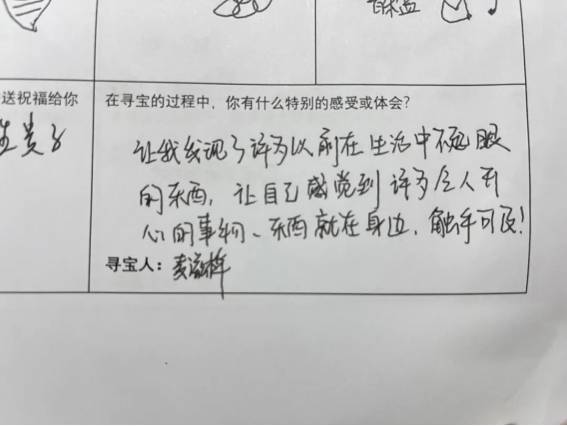 送祝福给你
生贵子
在寻宝的过程中，你有什么特别的感受或体会？
让我发现了许多以前在生活中不起眼
的东西，让自己感觉到许多令人开
心的事物、东西就在身边，触手可及！
寻宝人：